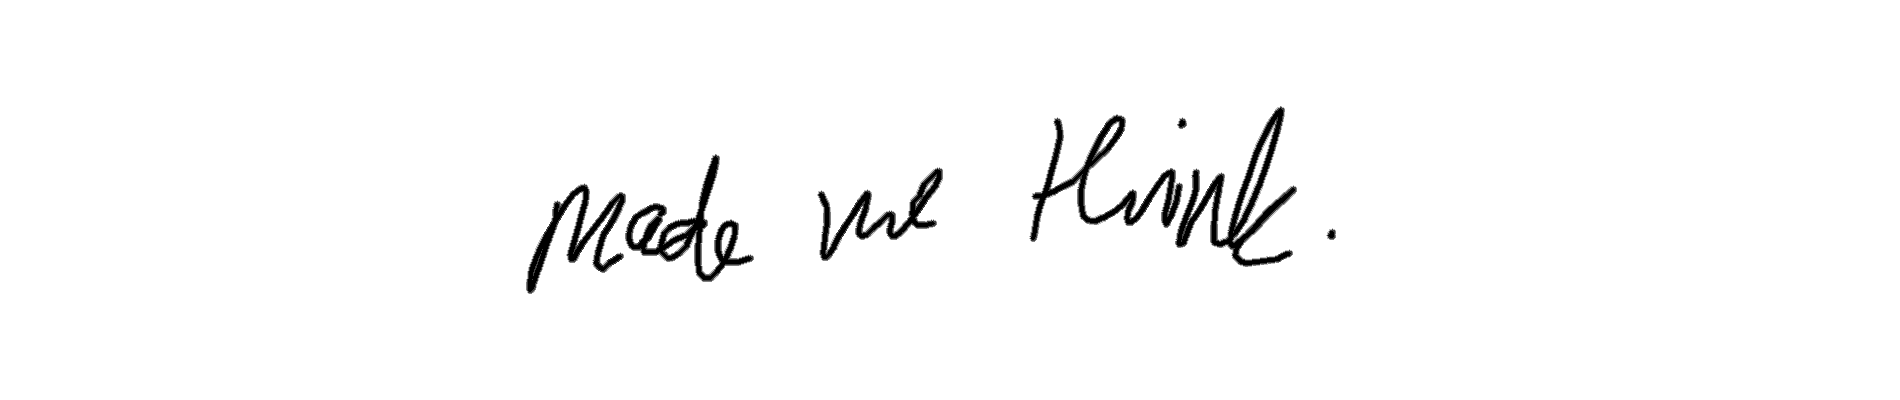 made me think.